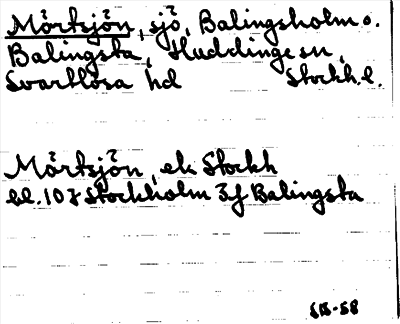 Mörtsjön, sjö, Balingsholm o.
Balingsta, Huddinge sn,
Svartlösa hd Stockh.l.
Mörtsjön, ek Stockh
bl. 10 7 Stockholm 3f Balingsta
SB-58